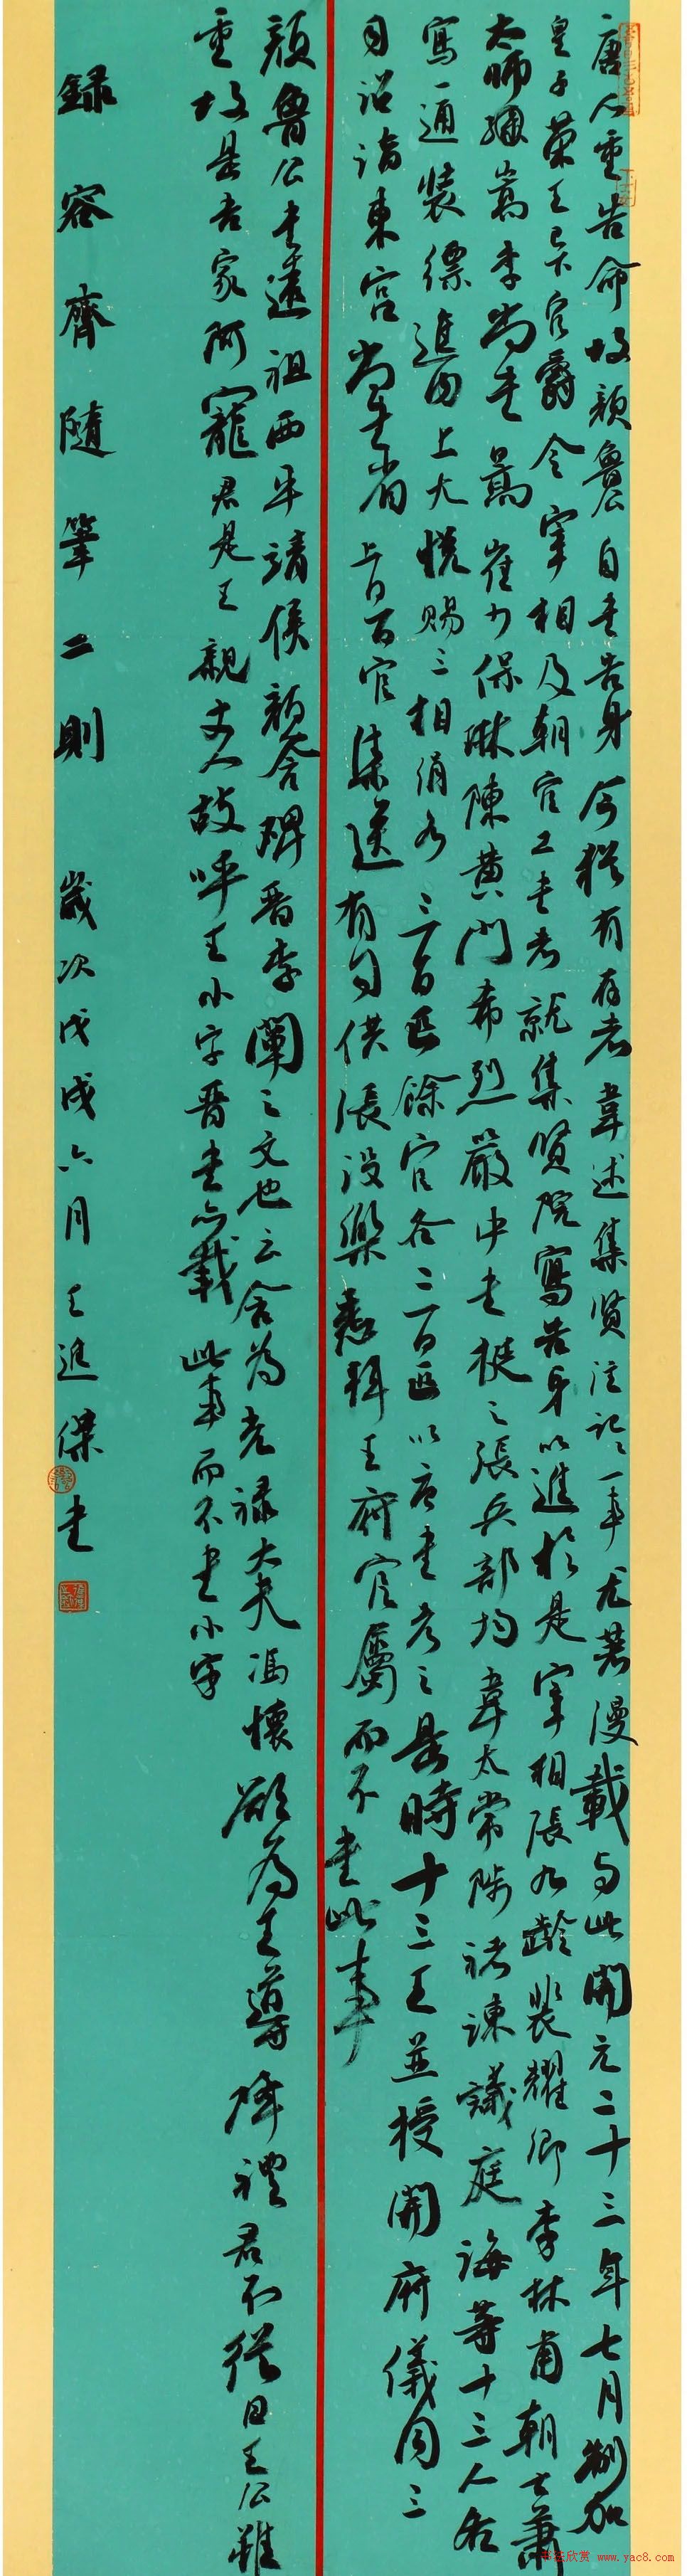 唐人重告命故顏魯公自書告身今猶有存者韋述集賢注記記一事尤著漫載於此開元二十三年七月制加
皇子榮王已下官爵令宰相及朝官工書者就集賢院寫告身以進於是宰相張九齡裴耀卿李林甫朝士蕭
太師嵩李尚書暠崔少保琳陳黃門希烈嚴中書挺之張兵部均韋太常陟褚諫議庭誨等十三人各
寫一通裝縹進内上大悅賜三相絹各三百匹餘官各二百匹以唐書考之是時十三王並授開府儀同三
司詔詣東宮尚書省上日百官集送有司供張設樂悉拜王府官屬而不書此事
顏魯公書遠祖西平靖侯顏含碑晉李闡之文也云含為光祿大夫馮懷欲為王導降禮君不從曰王公雖
重故是吾家阿寵君是王親丈人故呼王小字晉書亦載此事而不書小字
錄容齋隨筆二則 歲次戊戌六月王進傑書
书法欣赏 www.yac8.com